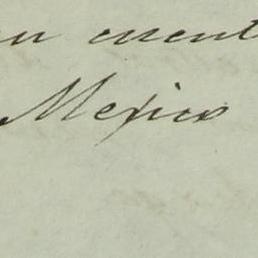 en cuent
Mexico